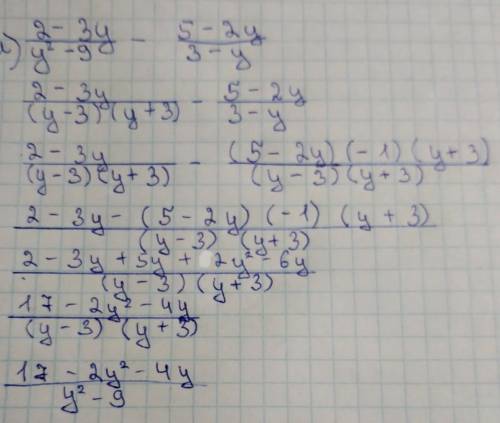 а) (2 - 3y)/(y² - 9) - (5 - 2y)/(3 - y)
(2 - 3y)/((y - 3)(y + 3)) - (5 - 2y)/(3 - y)
(2 - 3y)/((y - 3)(y + 3)) - ((5 - 2y)(-1)(y + 3))/((y - 3)(y + 3))
(2 - 3y - (5 - 2y)(-1)(y + 3))/((y - 3)(y + 3))
(2 - 3y + 5y + 2y² - 6y)/((y - 3)(y + 3))
(17 - 2y² - 4y)/((y - 3)(y + 3))
(17 - 2y² - 4y)/(y² - 9)